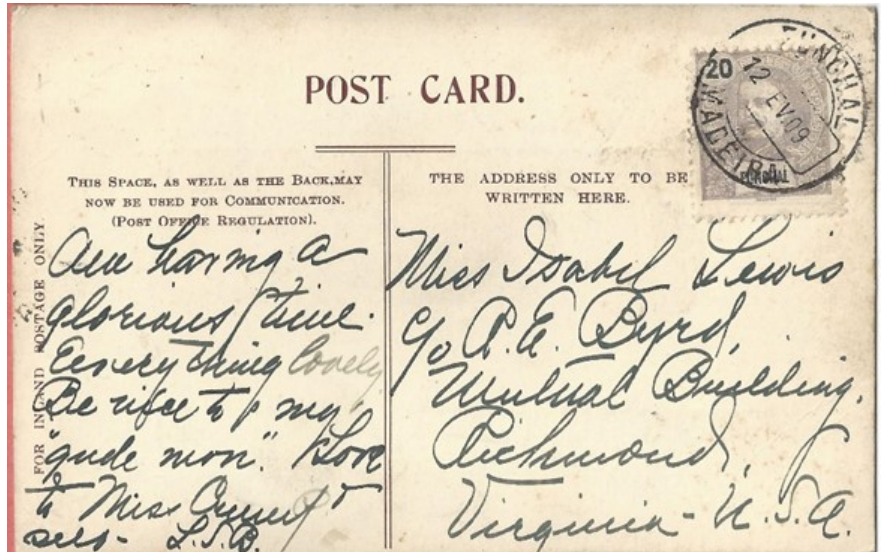 POST CARD.
20
FUNCHAL
12 EV 09
MADEIRA
FUNCHAL
THIS SPACE, AS WELL AS THE BACK, MAY
NOW BE USED FOR COMMUNICATION.
(POST OFFICE REGULATION).
FOR INLAND POSTAGE ONLY.
Am having a
glorious time.
Everything lovely
Be nice to my
"gude mon". Love
to Miss
self - L.S.B.
THE ADDRESS ONLY TO BE
WRITTEN HERE.
Miss Isabel Lewis
c/o A. E. Byrd,
Mutual Building.
Richmond,
Virginia - U.S.A.